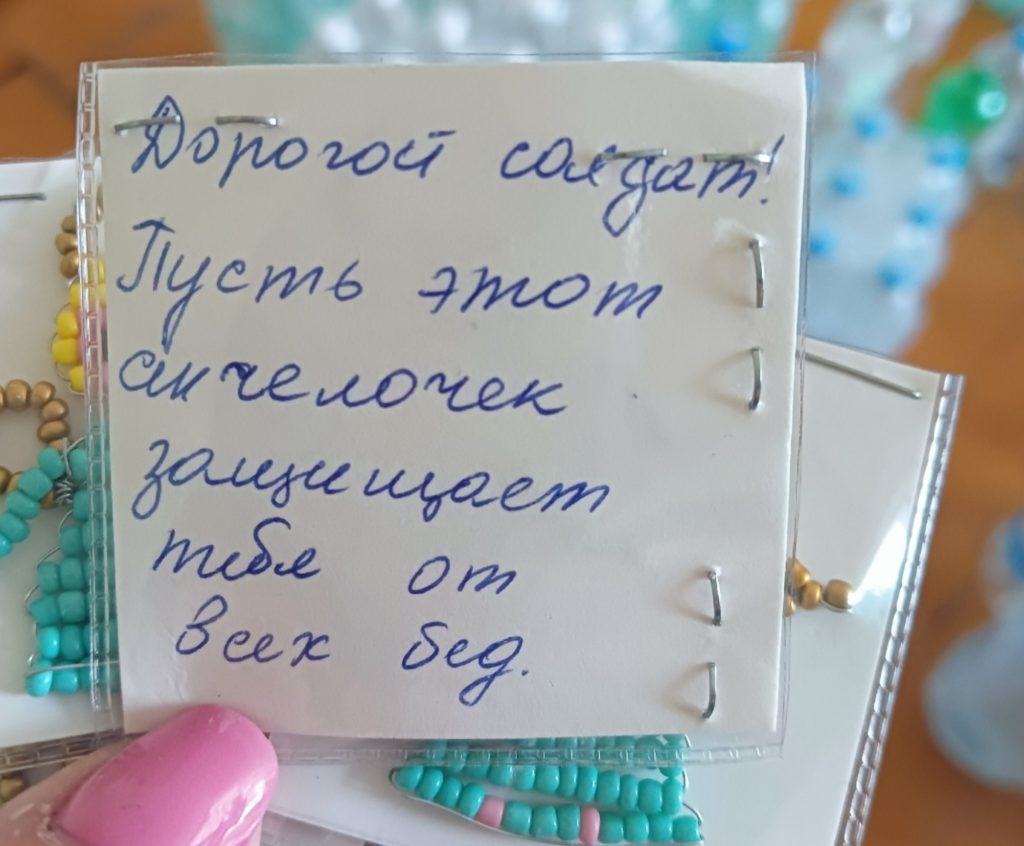 Дорогой солдат!
Пусть этот
ангелочек
защищает
тебя от
всех бед.